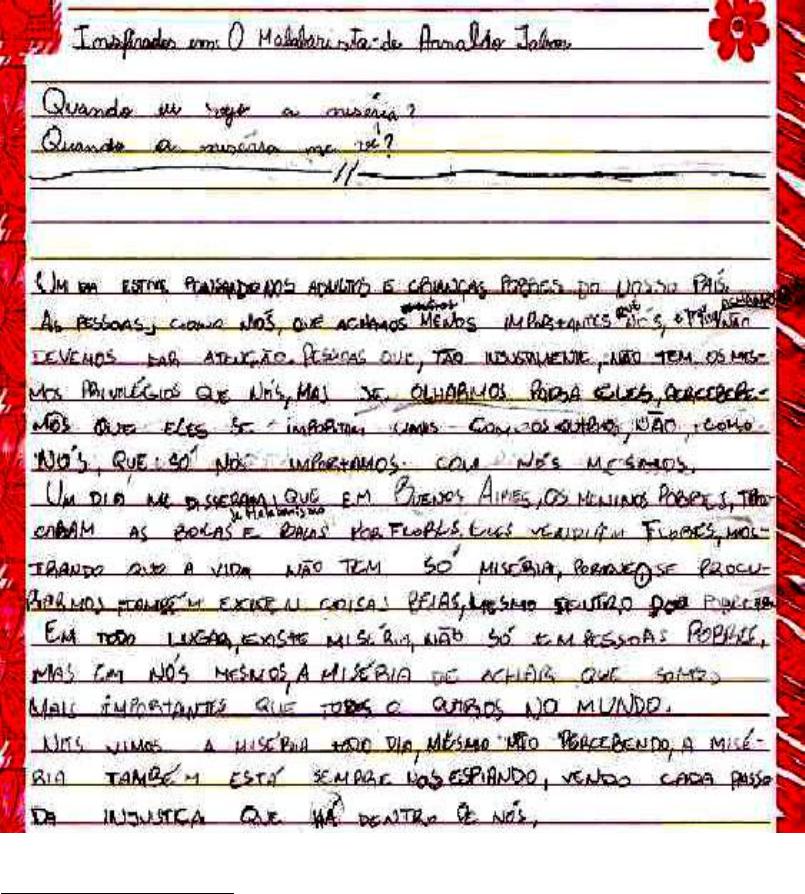 Inspirados em: O Malabarista - de Arnaldo Jabor
Quando eu vejo a miséria?
Quando a miséria me vê?
UM DIA ESTIVE PENSANDO NOS ADULTOS E CRIANÇAS POBRES DO NOSSO PAÍS.
AS PESSOAS, COMO NÓS, QUE ACHAMOS MENOS IMPORTANTES QUE NÓS, ACHAMOS NÃO
DEVEMOS DAR ATENÇÃO. PESSOAS QUE, TÃO INJUSTAMENTE, NÃO TEM OS MES-
MOS PRIVILÉGIOS QUE NÓS, MAS SE OLHARMOS PARA ELES, PERCEBERE-
MOS QUE ELES SE IMPORTAM UNS COM OS OUTROS, NÃO, COMO
NÓS, QUE SÓ NOS IMPORTAMOS COM NÓS MESMOS.
UM DIA ME DISSERAM, QUE EM BUENOS AIRES, OS MENINOS POBRES, TRO-
CARAM AS BOLAS de Malabarismo E BALAS POR FLORES, ELES VENDIAM FLORES, MOS-
TRANDO QUE A VIDA NÃO TEM SÓ MISÉRIA, PORQUE, SE PROCU-
RARMOS TAMBÉM EXISTEM COISAS BELAS, MESMO DENTRO
EM TODO LUGAR, EXISTE MISÉRIA, NÃO SÓ EM PESSOAS POBRES,
MAS EM NÓS MESMOS, A MISÉRIA DE ACHAR QUE SOMOS
MAIS IMPORTANTES QUE TODOS O OUTROS NO MUNDO.
NÓS VIMOS A MISÉRIA TODO DIA, MESMO NÃO PERCEBENDO, A MISÉ-
RIA TAMBÉM ESTÁ SEMPRE NOS ESPIANDO, VENDO CADA PASSO
DA INJUSTIÇA QUE HÁ DENTRO DE NÓS,